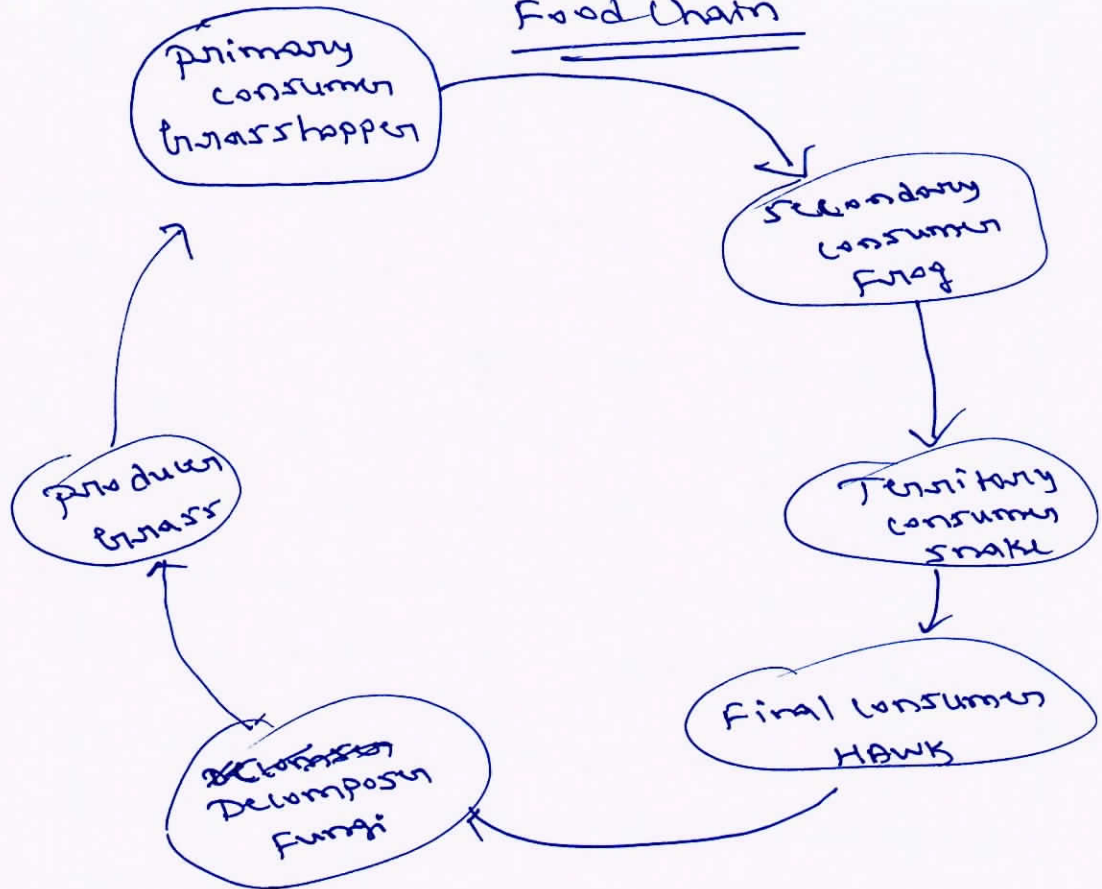 Food Chain
primary
consumer
Grasshopper
secondary
consumer
Frog
Territory
consumer
snake
Final consumer
HAWK
Decomposer
Fungi
producer
Grass